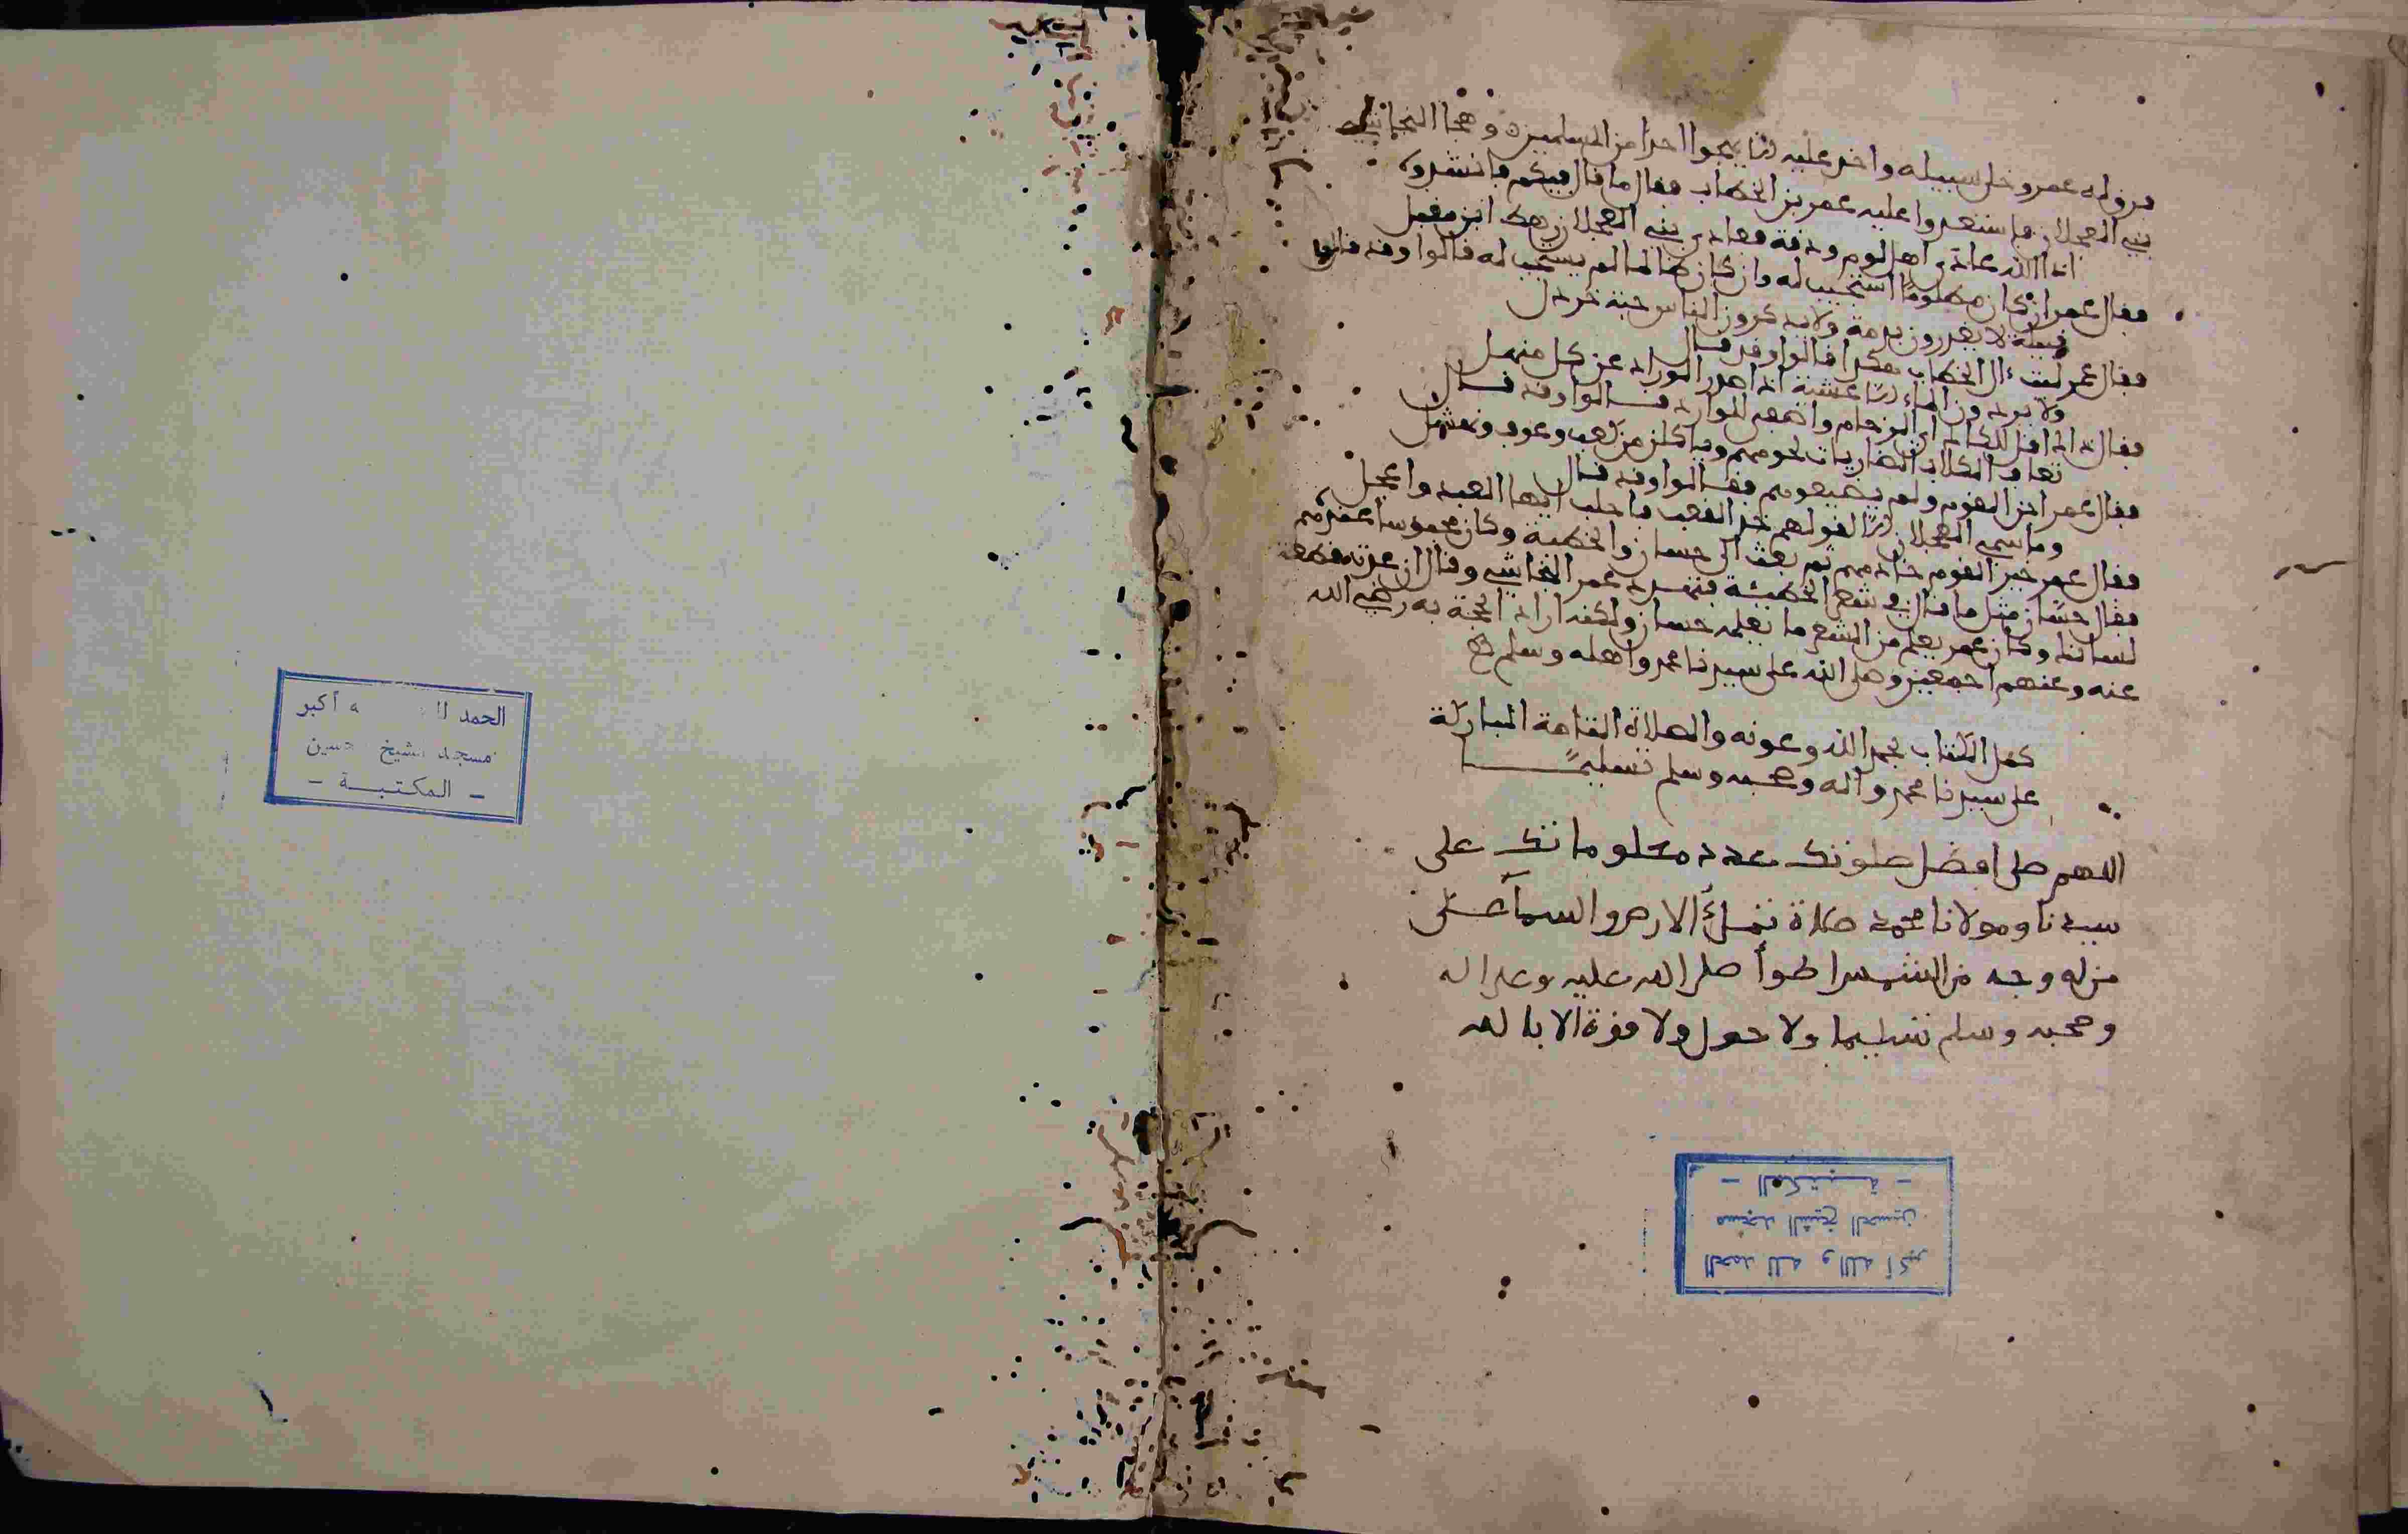 فرق له عمر وخلى سبيله واخذ عليه الا يهجوا احدا من المسلمين وهجا النجاشي
بني العجلان فاستعدوا عليه عمر بن الخطاب فقال ما قال فيكم فانشدوه
اذا الله عادى اهل لوم ودقة فعادى بني العجلان رهط ابن مقبل
فقال عمر ان كان مظلوما استجيب له وان كان ظالما لم يستجب له قالوا وقد قال
قبيلة لا يغدرون بذمة ولا يظلمون الناس حبة خردل
فقال عمر ليت ءال الخطاب هكذا قالوا وقد قال
ولا يردون الماء الا عشية اذا صدر الوراد عن كل منهل
فقال ذلك اقل للكاك اي الزحام واصفى للموارد قالوا وقد قال
تعاف الكلاب الضاريات لحومهم وياكلن من كعب وعوف ونهشل
فقال عمر احرز القوم ولم يضيعوهم فقالوا وقد قال
وما سمي العجلان الا لقولهم خذ القعب فاحلب ايها العبد واعجل
فقال عمر خير القوم خادمهم ثم بعث الى حسان والحطيئة وكان محبوسا عنده
فقال حسان مثل ما قال في شعر الحطيئة فتهدد عمر النجاشي وقال ان عدت قطعت
لسانك وكان عمر يعلم من الشعر ما يعلمه حسان ولكنه اراد الحجة به رضي الله
عنه وعنهم اجمعين وصلى الله على سيدنا محمد واهله وسلم
كمل الكتاب بحمد الله وعونه والصلاة التامة المباركة
على سيدنا محمد وآله وصحبه وسلم تسليما
اللهم صلى افضل صلوتك عدد معلوماتك على
سيدنا ومولانا محمد صلاة تملأ الارض والسما على
من له وجه من الشمس اضوأ صلى الله عليه وعلى اله
وصحبه وسلم تسليما ولا حول ولا قوة الا بالله
الحمد لله والله أكبر
مسجد الشيخ الحسين
- المكتبة -
الحمد أكبر
مسجد الشيخ حسين
- المكتبة -